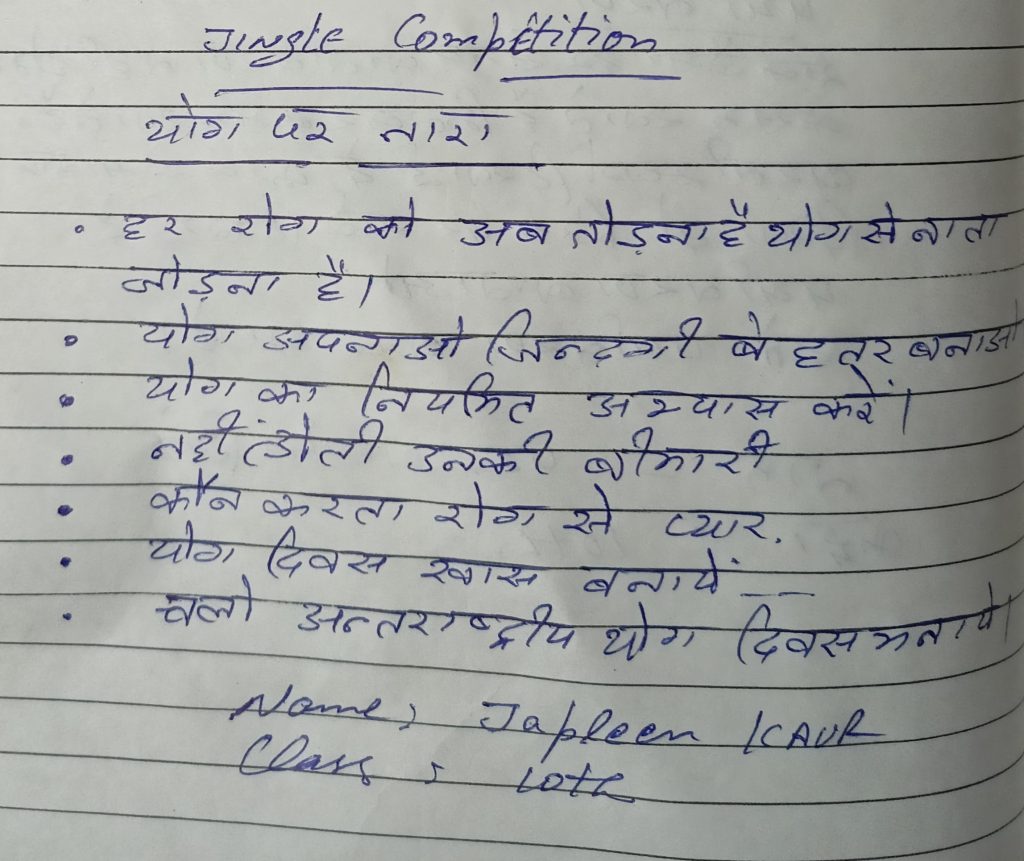 Jingle Competition
योग पर नारा
• हर रोग को अब तोड़ना है योग से नाता
जोड़ना है।
• योग अपनाओ जिन्दगी बेहतर बनाओ
• योग का नियमित अभ्यास करें।
• नहीं होती उनकी बीमारी
• कौन करता रोग से प्यार.
• योग दिवस खास बनायें __
• चलो अन्तराष्ट्रीय योग दिवस मनायें।
Name; Japleen KAUR
Class; 10th